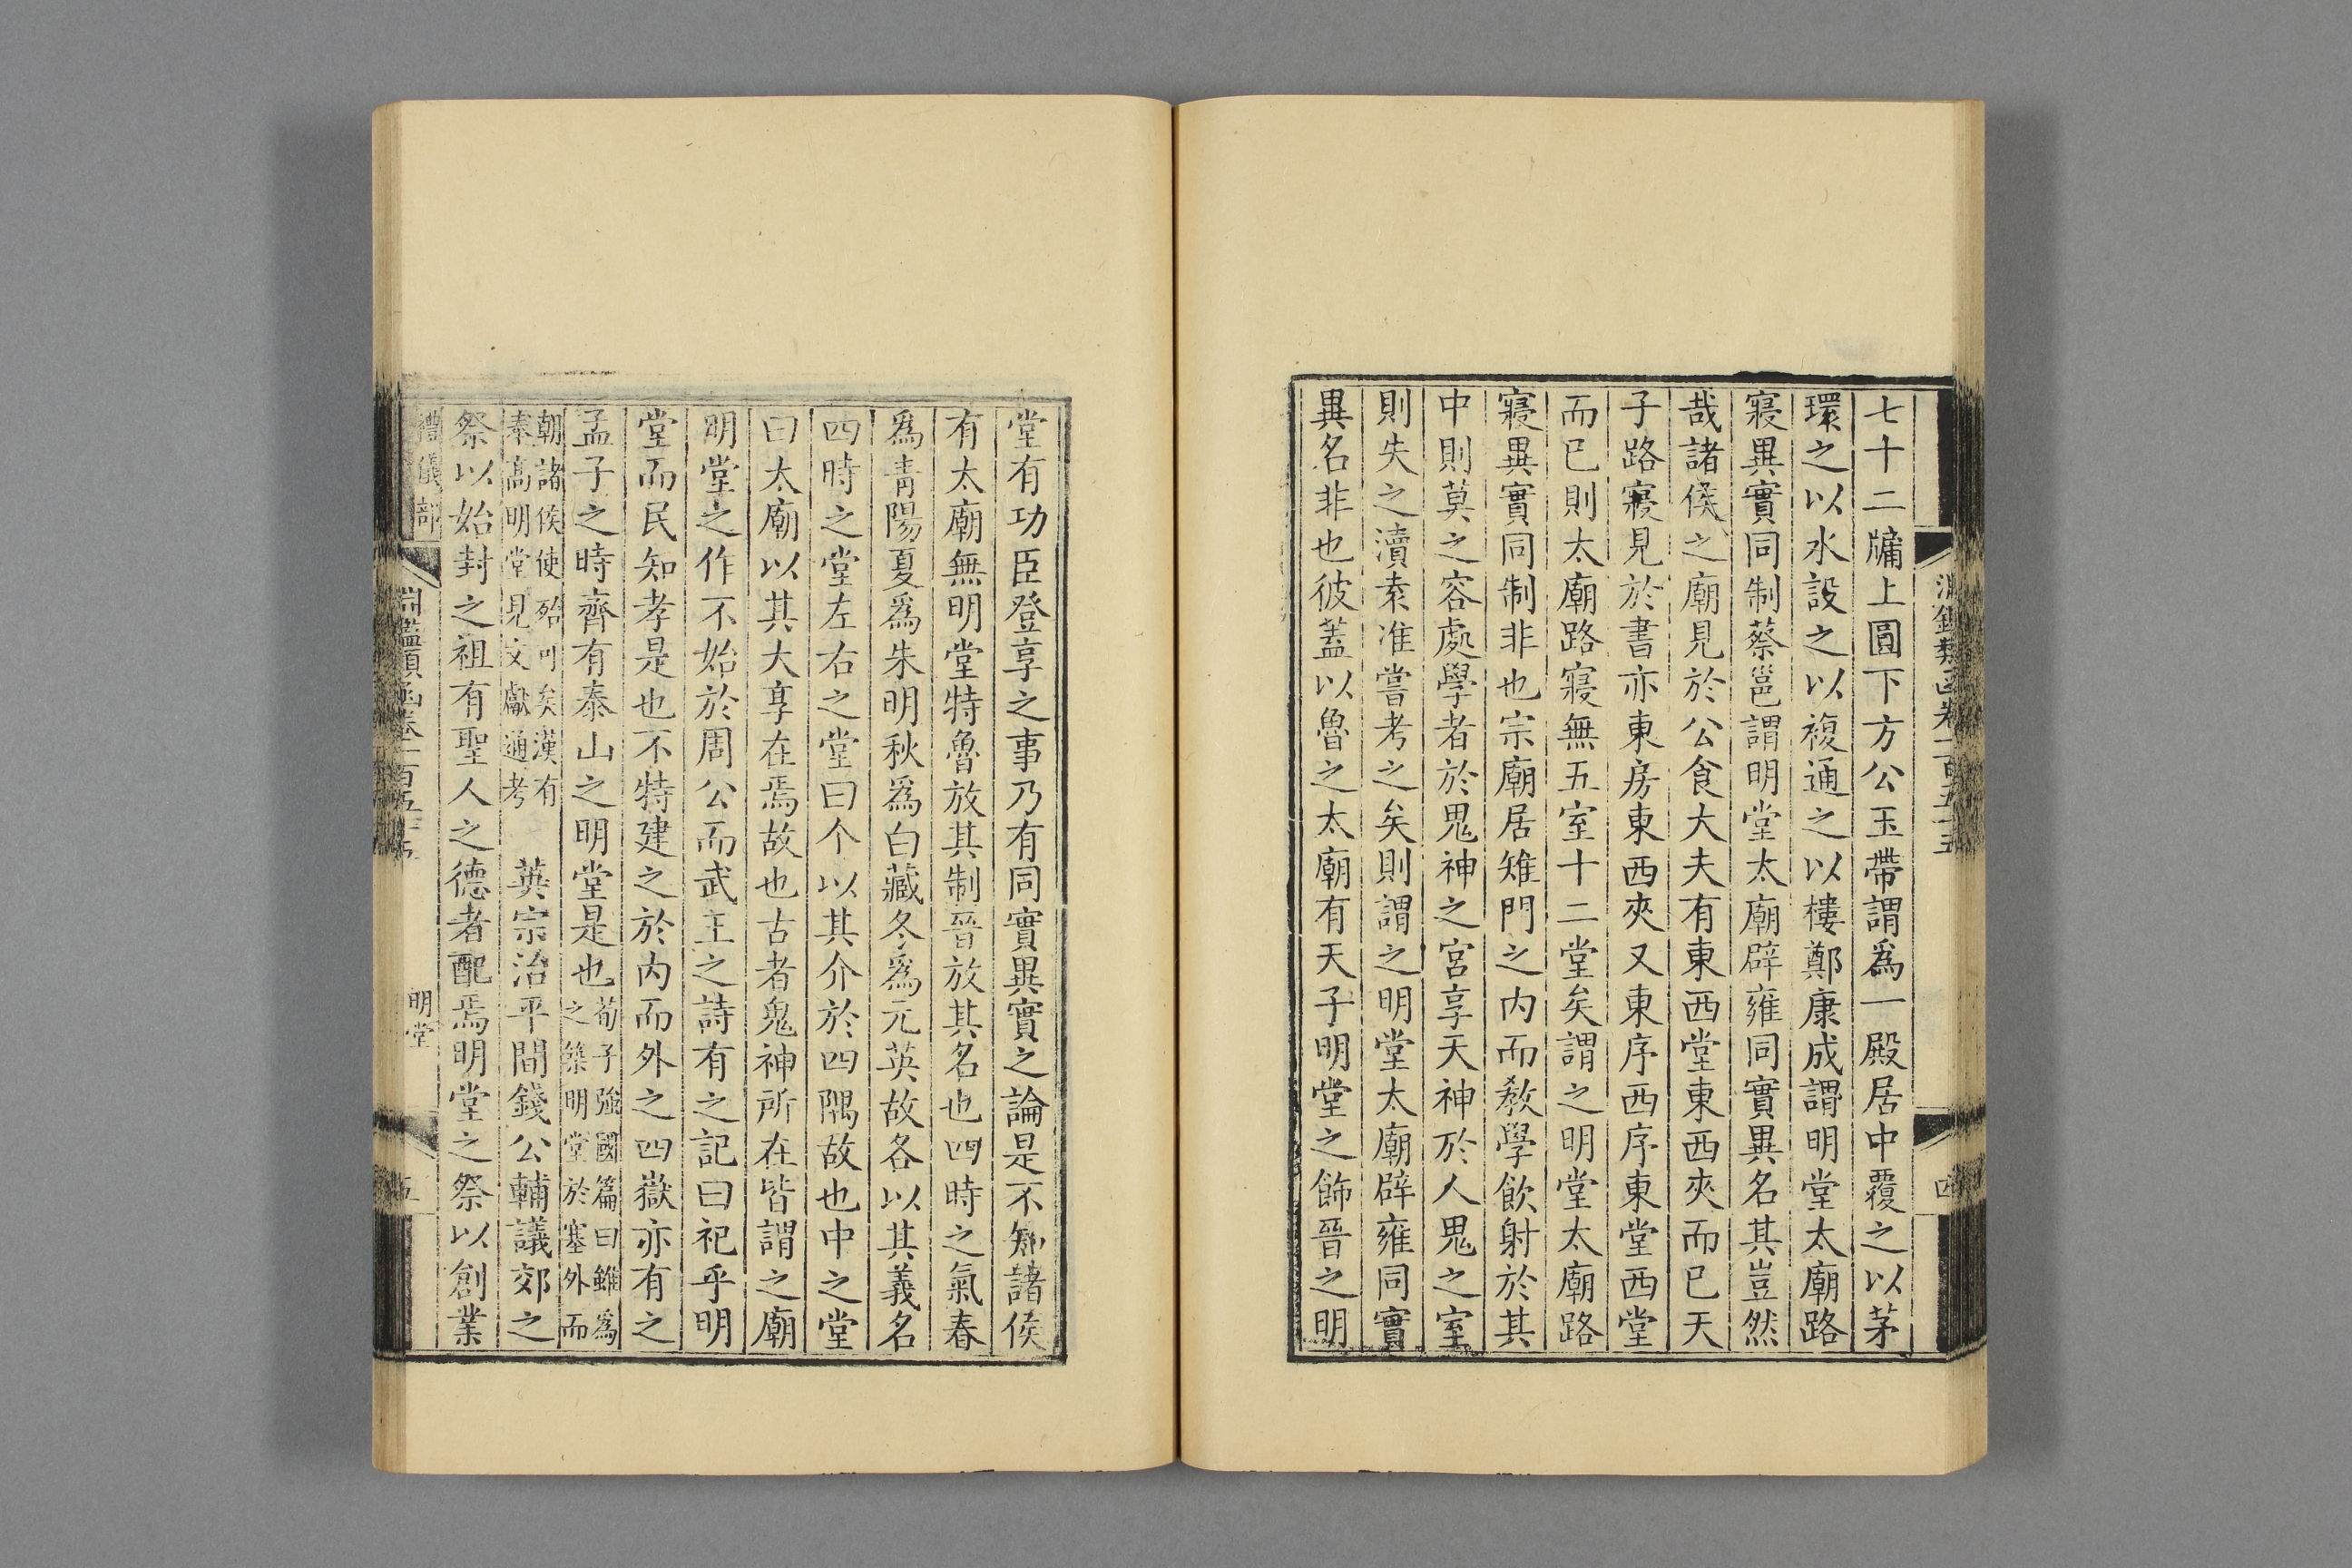 淵鑑類函卷一百五十五
四
七十二牖上圓下方公玉帶謂爲一殿居中覆之以茅
環之以水設之以複通之以樓鄭康成謂明堂太廟路
寢異實同制蔡邕謂明堂太廟辟雍同實異名其豈然
哉諸侯之廟見於公食大夫有東西堂東西夾而已天
子路寢見於書亦東房東西夾又東序西序東堂西堂
而已則太廟路寢無五室十二堂矣謂之明堂太廟路
寢異實同制非也宗廟居雉門之内而敎學飲射於其
中則莫之容處學者於鬼神之宮享天神於人鬼之室
則失之瀆袁准嘗考之矣則謂之明堂太廟辟雍同實
異名非也彼蓋以魯之太廟有天子明堂之飾晉之明
堂有功臣登享之事乃有同實異實之論是不知諸侯
有太廟無明堂特魯放其制晉放其名也四時之氣春
爲青陽夏爲朱明秋爲白藏冬爲元英故各以其義名
四時之堂左右之堂曰个以其介於四隅故也中之堂
曰太廟以其大享在焉故也古者鬼神所在皆謂之廟
明堂之作不始於周公而武王之詩有之記曰祀乎明
堂而民知孝是也不特建之於内而外之四嶽亦有之
孟子之時齊有泰山之明堂是也荀子強國篇曰雖爲
之築明堂於塞外而
朝諸侯使殆可矣漢有
奉高明堂見文獻通考 英宗治平間錢公輔議郊之
祭以始封之祖有聖人之德者配焉明堂之祭以創業
禮儀部
淵鑑類函卷一百五十五
明堂
五